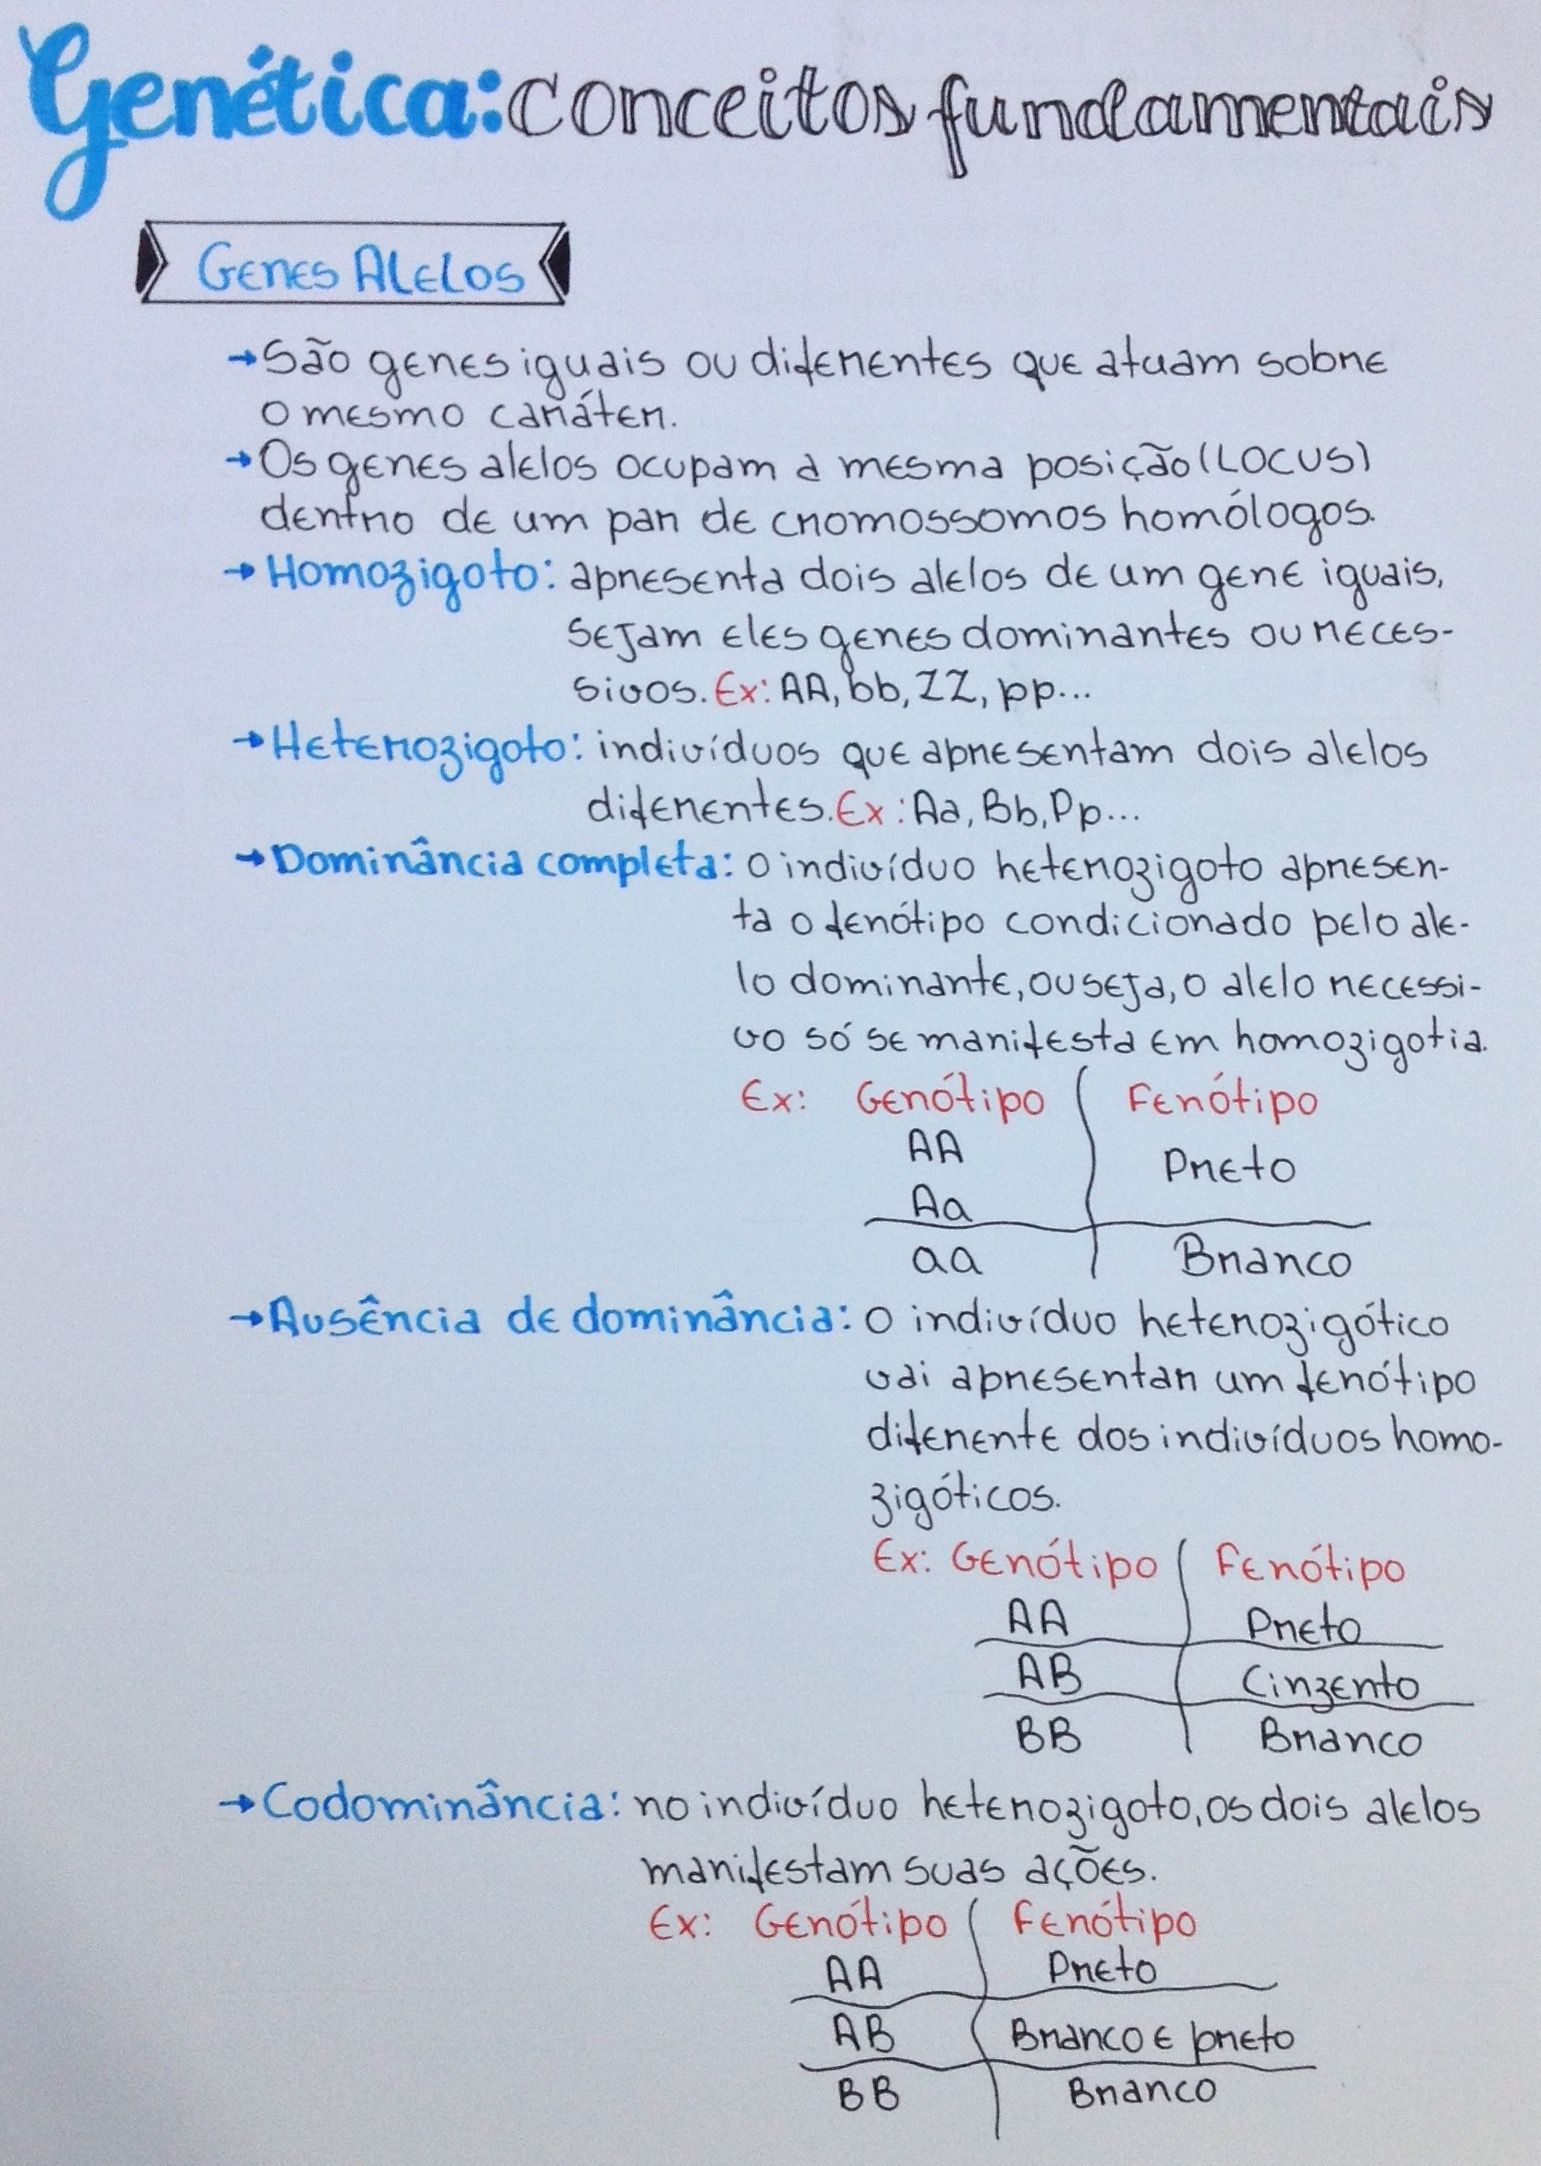 Genética: conceitos fundamentais
Genes Alelos
→ São genes iguais ou diferentes que atuam sobre
o mesmo caráter.
→ Os genes alelos ocupam a mesma posição (LOCUS)
dentro de um par de cromossomos homólogos.
→ Homozigoto: apresenta dois alelos de um gene iguais,
sejam eles genes dominantes ou reces-
sivos. Ex: AA, bb, ZZ, pp...
→ Heterozigoto: indivíduos que apresentam dois alelos
diferentes. Ex: Aa, Bb, Pp...
→ Dominância completa: o indivíduo heterozigoto apresen-
ta o fenótipo condicionado pelo ale-
lo dominante, ou seja, o alelo recessi-
vo só se manifesta em homozigotia.
Ex: Genótipo Fenótipo
AA
Preto
Aa
aa Branco
→ Ausência de dominância: o indivíduo heterozigótico
vai apresentar um fenótipo
diferente dos indivíduos homo-
zigóticos.
Ex: Genótipo Fenótipo
AA Preto
AB Cinzento
BB Branco
→ Codominância: no indivíduo heterozigoto, os dois alelos
manifestam suas ações.
Ex: Genótipo Fenótipo
AA Preto
AB Branco e preto
BB Branco